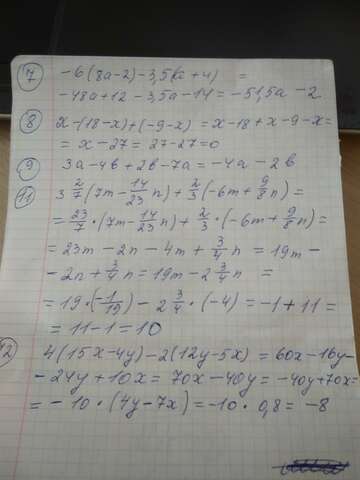 7 -6(8a-2)-3,5(a+4) =
-48a+12-3,5a-14=-51,5a-2
8 x-(18-x)+(-9-x)=x-18+x-9-x=
= x-27= 27-27=0
9 3a-4b+2b-7a=-4a-2b
11 3 2/7(7m-14/23 n)+2/3(-6m+9/8 n)=
= 23/7·(7m-14/23 n)+2/3·(-6m+9/8 n)=
= 23m-2n-4m+3/4 n = 19m-
-2n+3/4 n=19m-2 3/4 n =
= 19·(-1/19)-2 3/4·(-4)=-1+11=
= 11-1=10
12 4(15x-4y)-2(12y-5x)=60x-16y-
-24y+10x=70x-40y=-40y+70x=
= -10·(4y-7x)=-10·0,8=-8